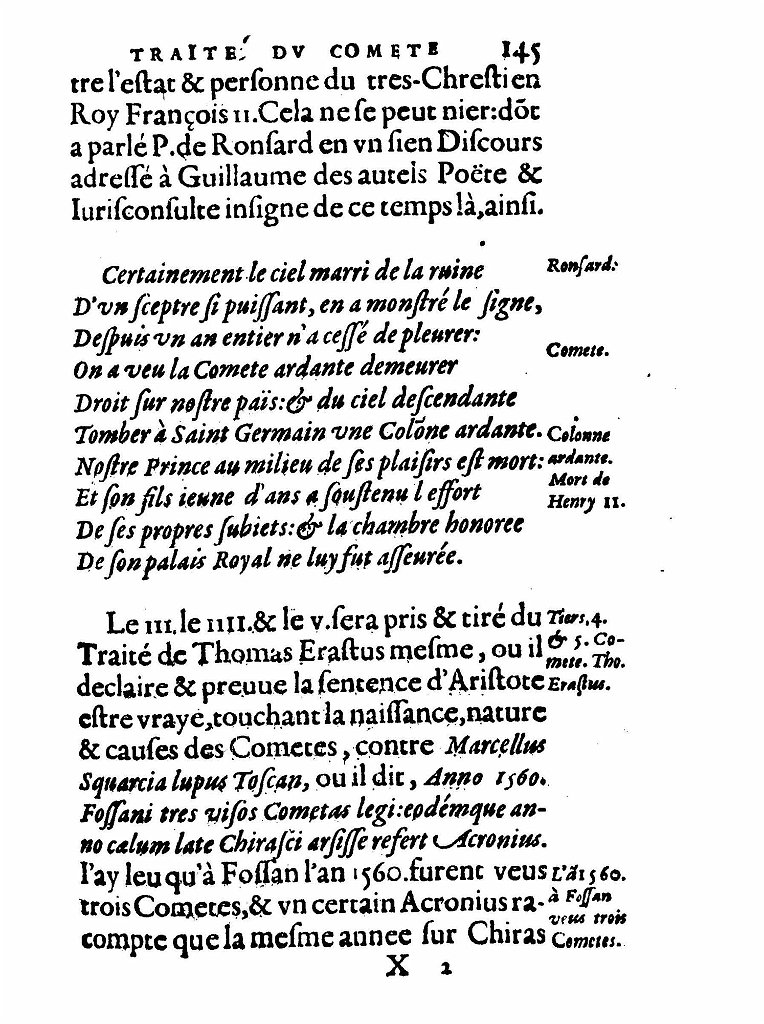 TRAITÉ DV COMETE 145
tre l'eſtat & perſonne du tres-Chreſtien
Roy François II. Cela ne ſe peut nier: dõt
a parlé P. de Ronſard en vn ſien Diſcours
adreſſé à Guillaume des autels Poëte &
Iuriſconſulte inſigne de ce temps là, ainſi.
Certainement le ciel marri de la ruine
Ronſard:
D'vn ſceptre ſi puiſſant, en a monſtré le ſigne,
Deſpuis vn an entier n'a ceſſé de pleurer:
On a veu la Comete ardante demeurer
Comete.
Droit ſur noſtre païs: & du ciel deſcendante
Tomber à Saint Germain vne Colõne ardante.
Colonne
ardante.
Noſtre Prince au milieu de ſes plaiſirs eſt mort:
Mort de
Henry II.
Et ſon fils ieune d'ans a ſouſtenu l effort
De ſes propres ſubiets: & la chambre honoree
De ſon palais Royal ne luy fut aſſeurée.
Le III. le IIII. & le V. ſera pris & tiré du
Tiers, 4.
& 5. Co-
mete. Tho.
Eraſtus.
Traité de Thomas Eraſtus meſme, ou il
declaire & preuue la ſentence d'Ariſtote
eſtre vraye, touchant la naiſſance, nature
& cauſes des Cometes, contre Marcellus
Squarcia lupus Toſcan, ou il dit, Anno 1560.
Foſſani tres viſos Cometas legi: eodémque an-
no cælum late Chiraſci arſiſſe refert Acronius.
I'ay leu qu'à Foſſan l'an 1560. furent veus
L'ã 1560.
à Foſſan
veus trois
Cometes.
trois Cometes, & vn certain Acronius ra-
compte que la meſme annee ſur Chiras
X 2